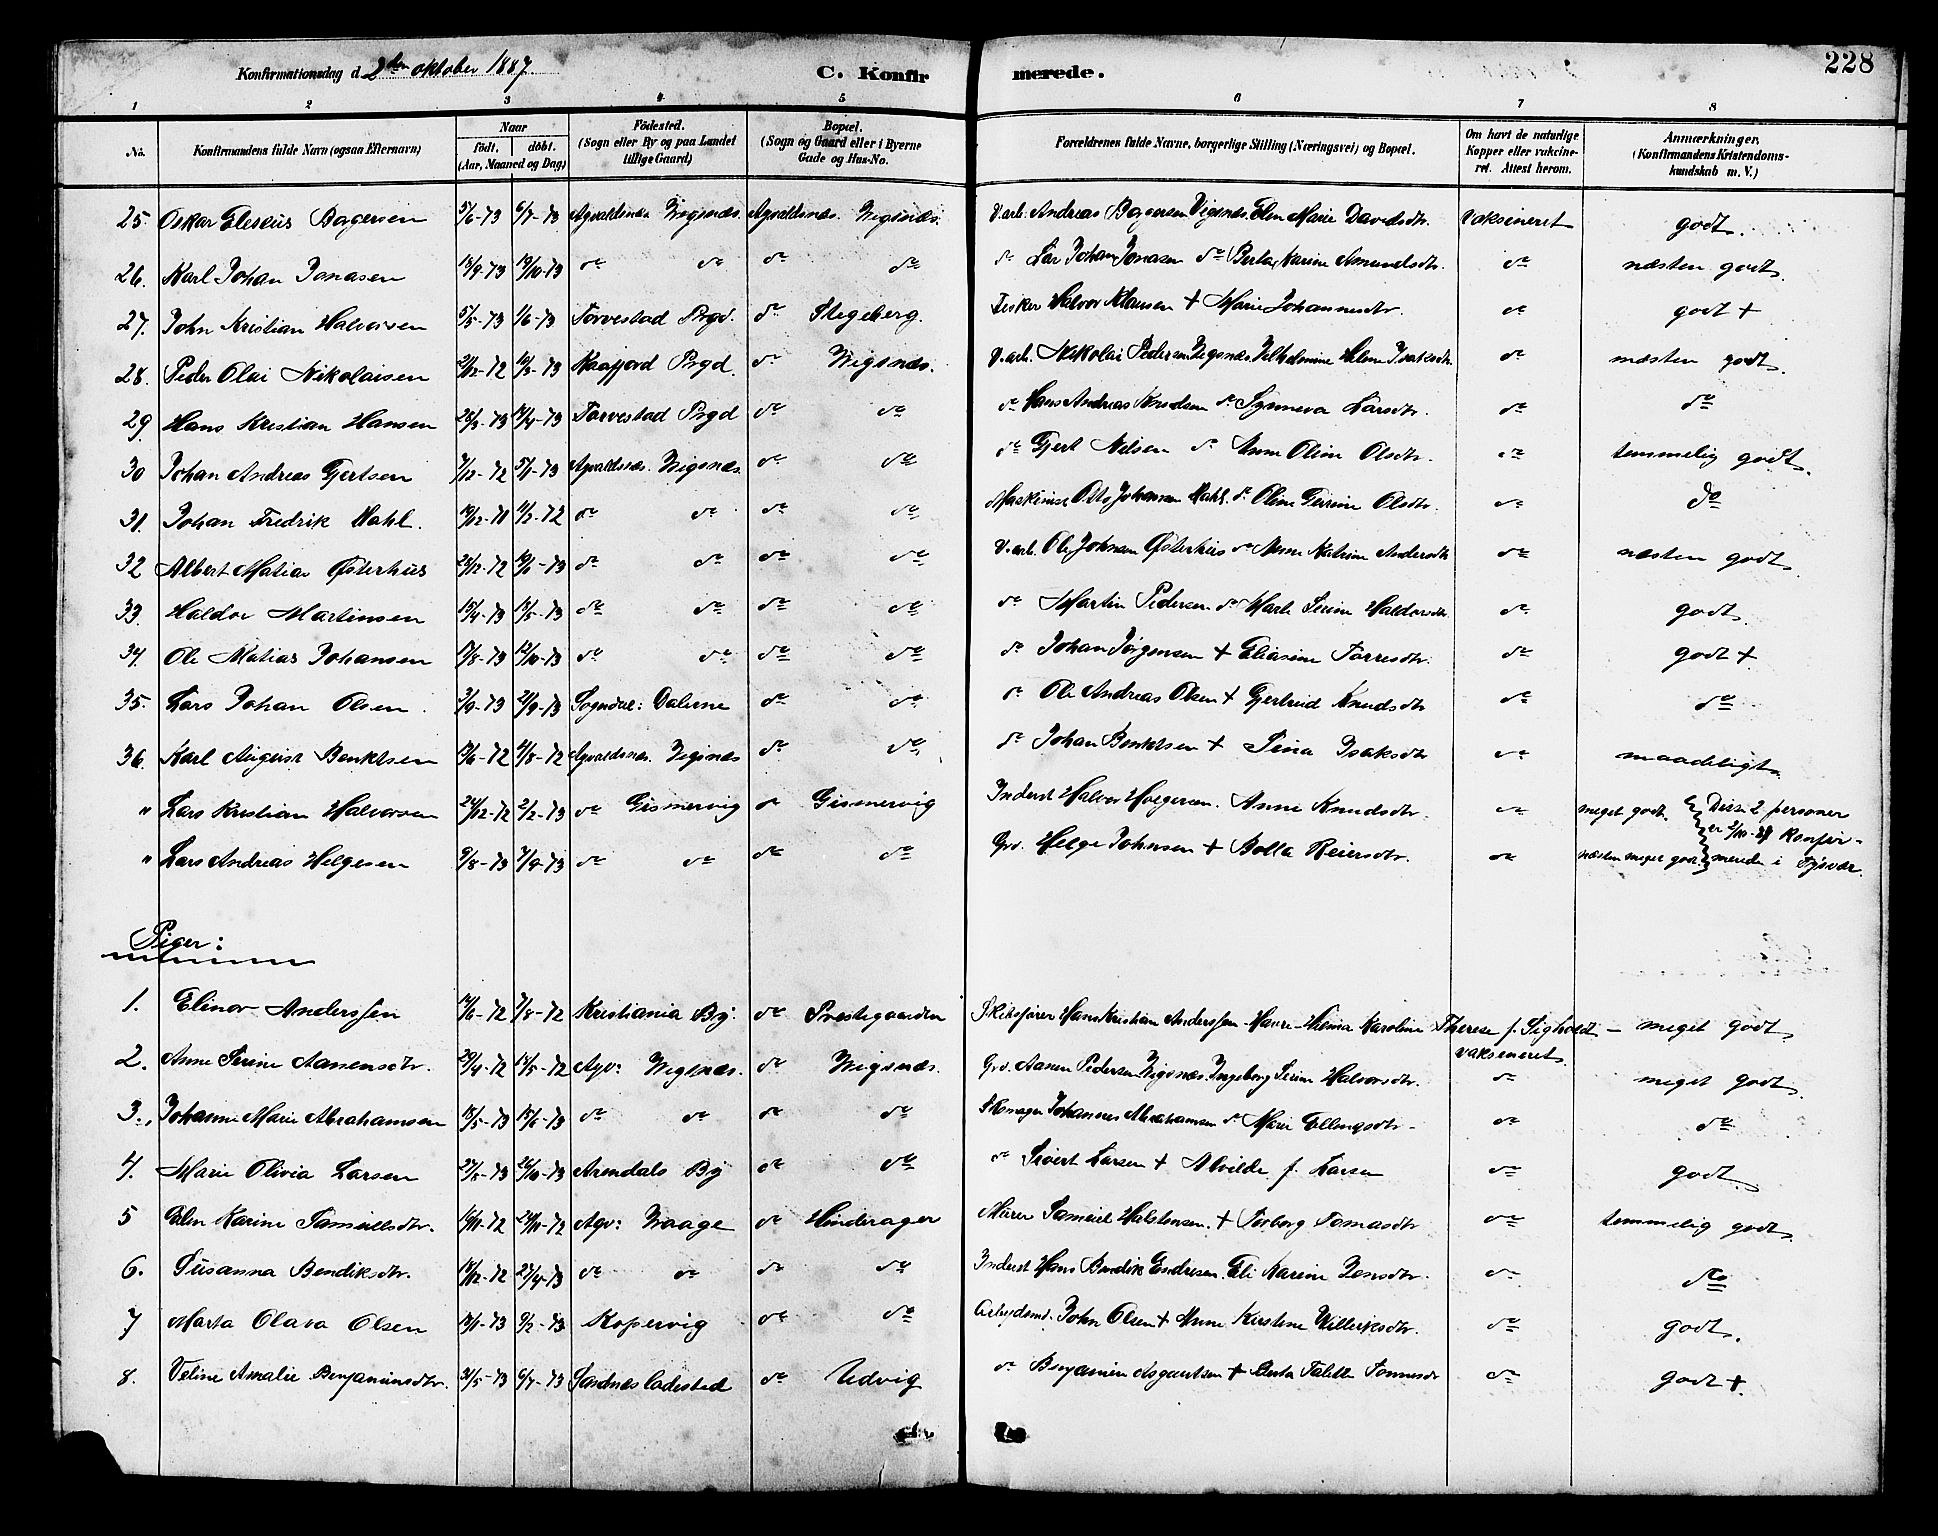 228
Konfirmationsdag d. 2den oktober 1887 C. Konfirmerede.
1 2 3 4 5 6 7 8
No. Konfirmandens fulde Navn (ogsaa Efternavn) Naar födt. döbt. (Aar, Maaned og Dag) Födested. (Sogn eller By og paa Landet tillige Gaard) Bopæl. (Sogn og Gaard eller i Byerne Gade og Hus-No. Forældrenes fulde Navne, borgerlige Stilling (Næringsvei) og Bopæl. Om havt de naturlige Kopper eller vakcineret. Attest herom. Anmærkninger. (Konfirmandens Kristendomskundskab m. V.)
25. Oskar Eleseus Bagersen 5/6-73 6/7-73 Agvaldsnæs Wigsnæs. Agvaldsnæs. Wigsnæs. V.arb. Andreas Bagersen Vigsnæs. Elen Marie Davidsdtr. Vaksineret godt.
26. Karl Johan Jonasen 18/9-73 19/10-73 do do do do do Lar Johan Jonasen do Berta Karine Amundsdtr. do næsten godt
27. John Kristian Halvorsen 5/5-73 1/6-73 Torvestad Prgd. do Stegeberg. Fisker Halvor Klausen + Marie Johannesdtr. do godt +
28. Peder Olai Nikolaisen 21/12-72 16/3-73 Kaafjord Prgd. do Wigsnæs. V.arb. Nikolai Pedersen Vigsnæs. Vilhelmine Helene Isaksdtr. do næsten godt
29. Hans Kristian Hansen 28/3-73 14/4-73 Torvestad Prgd do do do Hans Andreas Knudsen do Synneva Larsdtr. do do
30 Johan Andreas Gjertsen 7/12-72 5/1-73 Agvaldsnæs. Wigsnæs. do do do Gjert Nilsen do Anne Oline Olsdtr. do temmelig godt
31. Johan Fredrik Kahl. 19/12-71 11/2-72 do do do do Maskinist Otto Johansen Kahl. do Oline Gurine Olsdtr. do do
32 Albert Matias Østerhus 26/12-72 19/1-73 do do do do V.arb. Ole Johnsen Østerhus do Anne Katrine Andersdtr do næsten godt
33. Haldor Martinsen 15/4-73 18/5-73 do do do do do Martin Pedersen do Marte Serine Haldorsdtr do godt
34. Ole Matias Johansen 17/8-73 12/10-73 do do do do do Johan Jørgensen + Eliasine Torresdtr. do godt +
35. Lars Johan Olsen 3/9-73 21/9-73 Sogndal: Dalerne do do do Ole Andreas Olsen + Gjertrud Knudsdtr do do
36. Karl August Benktsen 13/6-72 4/8-72 Agvaldsnæs. Vigsnæs do do do Johan Benktsen + Sina Isaksdtr do maadeligt
" Lars Kristian Halvorsen 24/12-72 2/2-73 do Gismervig do Gismervig Inderst Halvor Holgersen. Anne Knudsdtr. do meget godt. Disse 2 personer er 2/10-87 konfir-
" Lars Andreas Helgesen 9/8-73 7/9-73 do do do do Grd. Helge Johnsen + Bolla Reiersdtr. do næsten meget godt. merede i Tysvær.
Piger:
1. Elinor Anderssen 14/6-72 7/8-72 Kristiania By. do Prestegaarden Skibsfører Hans Kristian Anderssen - Karoline Therese f. Sigholdt - meget godt
vaksineret
2. Anne Serine Aanensdtr. 20/4-72 14/5-72 Agv: Wigsnæs. do Wigsnæs. Grd. Aanen Pedersen Wigsnæs. Ingeborg Serine Halvorsdtr. do meget godt
3. Johanne Marie Abrahamsen 18/5-73 15/6-73 do do do do Skomager Johannes Abrahamsen do Marie Ellingsdtr. do do
4. Marie Olivia Larsen 27/8-73 26/10-73 Arendals By do do do Sivert Larsen + Alvilde f. Larsen do godt
5 Elen Karine Samuelsdtr. 10/11-72 24/11-72 Agv: Waage do Hinderager Murer Samuel Halstensen. + Torborg Tomasdtr do temmelig godt
6. Susanna Bendiksdtr. 14/12-72 27/4-73 do do do do Inderst Hans Bendik Endresen. Eli Karine Jensdtr. do do
7 Marta Olava Olsen 13/1-73 9/2-73 Kopervig do do Arbejdsmd. John Olsen + Anne Kirstine Villeiksdtr. do godt.
8. Veline Amalie Benjaminsdtr. 31/5-73 6/7-73 Sandnes ladested do Udvig do Benjamin Asgautsen + Berta Talette Tønnesdtr do godt +.